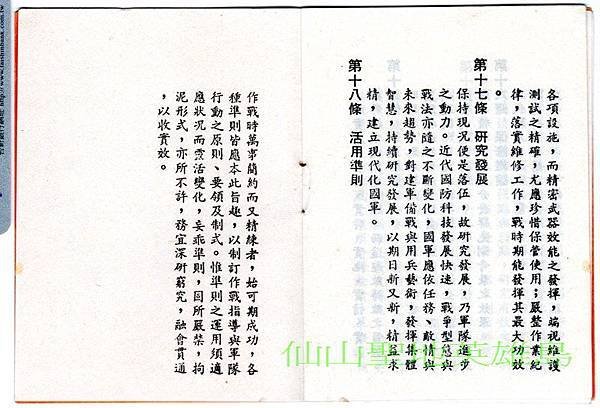 各項設施，而精密武器效能之發揮，端視維護
測試之精確，尤應珍惜保管使用；嚴整作業紀
律，落實維修工作，戰時期能發揮其最大功效
。
第十七條　研究發展
保持現況便是落伍，故研究發展，乃軍隊進步
之動力。近代國防科技發展快速，戰爭型態與
戰法亦隨之不斷變化，國軍應依任務、敵情與
未來趨勢，對建軍備戰與用兵藝術，發揮集體
智慧，持續研究發展，以期日新又新，精益求
精，建立現代化國軍。
第十八條　活用準則
作戰時萬事簡約而又精練者，始可期成功，各
種準則皆應本此旨趣，以制訂作戰指導與軍隊
行動之原則、要領及制式。惟準則之運用須適
應狀況而靈活變化，妄乖準則，固所嚴禁，拘
泥形式，亦所不許，務宜深研窮究，融會貫通
，以收實效。
仙山聖地英雄島